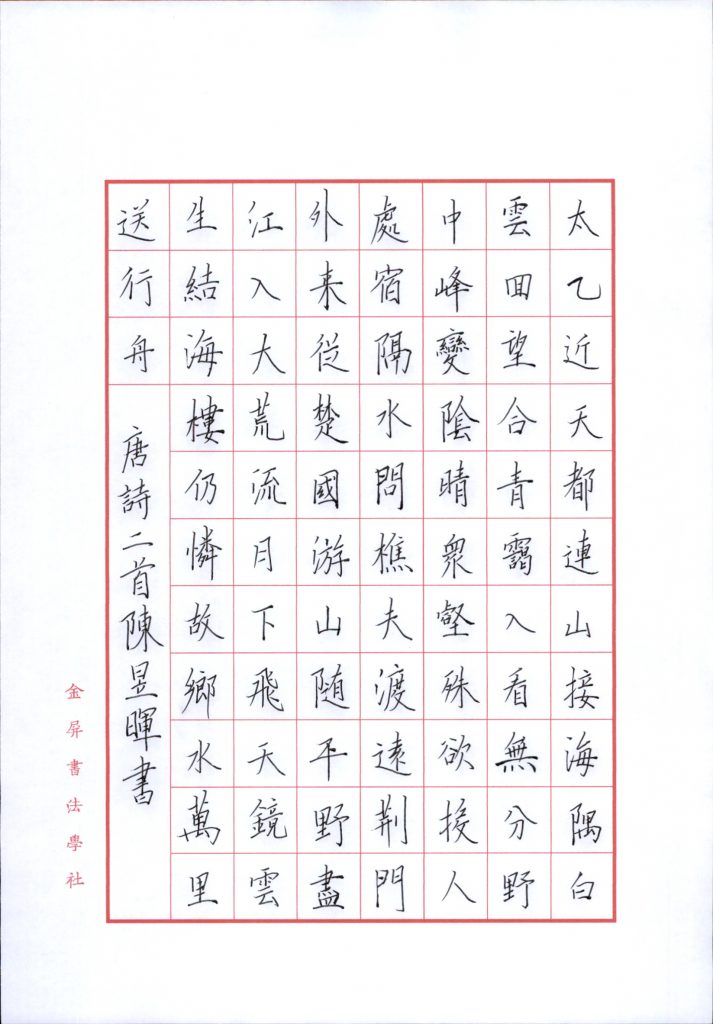 太乙近天都連山接海隅白
雲回望合青靄入看無分野
中峰變陰晴衆壑殊欲投人
處宿隔水問樵夫渡遠荆門
外来從楚國游山随平野盡
江入大荒流月下飛天鏡雲
生結海樓仍憐故鄉水萬里
送行舟 唐詩二首陳昱暉書
金屏書法學社